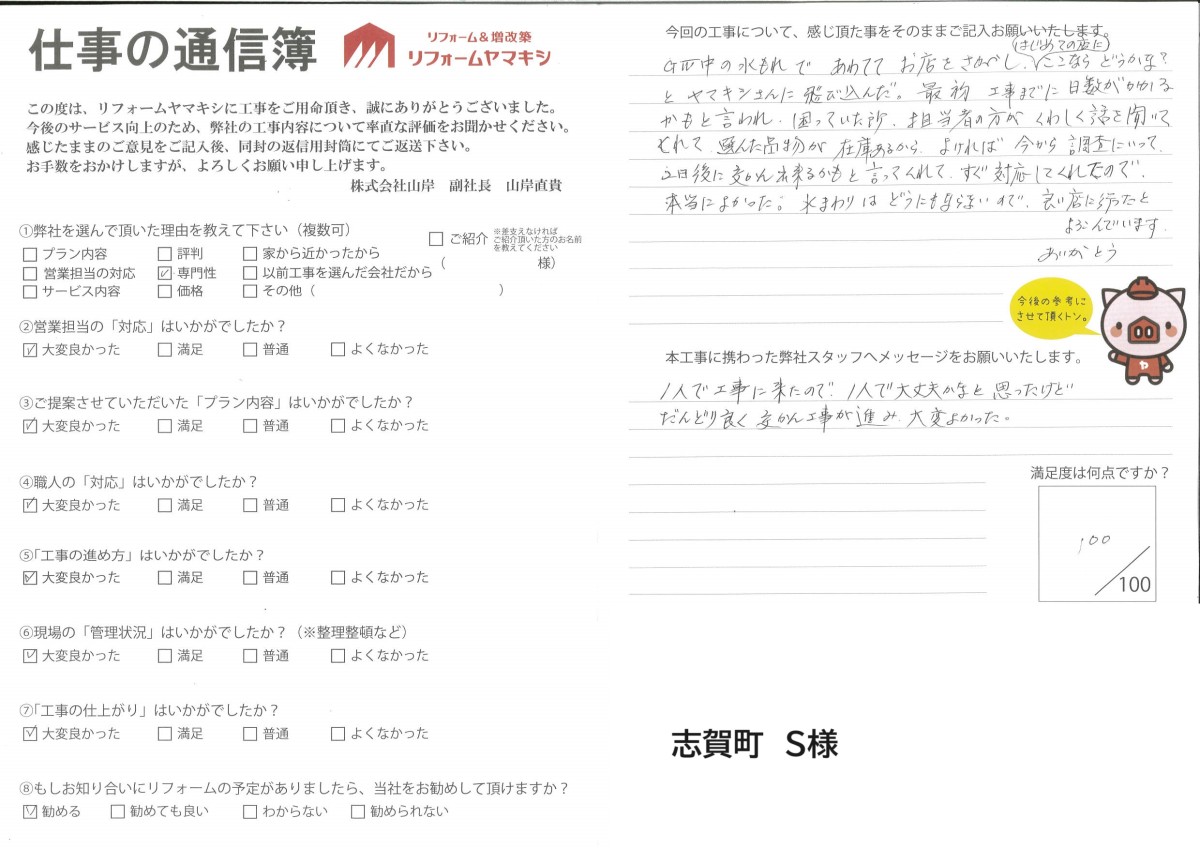 仕事の通信簿
リフォーム＆増改築
リフォームヤマキシ
この度は、リフォームヤマキシに工事をご用命頂き、誠にありがとうございました。
今後のサービス向上のため、弊社の工事内容について率直な評価をお聞かせください。
感じたままのご意見をご記入後、同封の返信用封筒にてご返送下さい。
お手数をおかけしますが、よろしくお願い申し上げます。
株式会社山岸　副社長　山岸直貴
①弊社を選んで頂いた理由を教えて下さい（複数可）
□ プラン内容 □ 評判 □ 家から近かったから
□ 営業担当の対応 ☑ 専門性 □ 以前工事を選んだ会社だから
□ サービス内容 □ 価格 □ その他（　　　）
□ ご紹介 ※差支えなければ
ご紹介頂いた方のお名前
を教えてください
（　　　様）
②営業担当の「対応」はいかがでしたか？
☑ 大変良かった □ 満足 □ 普通 □ よくなかった
③ご提案させていただいた「プラン内容」はいかがでしたか？
☑ 大変良かった □ 満足 □ 普通 □ よくなかった
④職人の「対応」はいかがでしたか？
☑ 大変良かった □ 満足 □ 普通 □ よくなかった
⑤「工事の進め方」はいかがでしたか？
☑ 大変良かった □ 満足 □ 普通 □ よくなかった
⑥現場の「管理状況」はいかがでしたか？（※整理整頓など）
☑ 大変良かった □ 満足 □ 普通 □ よくなかった
⑦「工事の仕上がり」はいかがでしたか？
☑ 大変良かった □ 満足 □ 普通 □ よくなかった
⑧もしお知り合いにリフォームの予定がありましたら、当社をお勧めして頂けますか？
☑ 勧める □ 勧めても良い □ わからない □ 勧められない
今回の工事について、感じ頂た事をそのままご記入お願いいたします。
(はじめての店に)
GW中の水もれで あわてて お店をさがし、ここなら どうかな？
と ヤマキシさんに 飛び込んだ。最初 工事までに 日数がかかる
かもと言われ、困っていた所、担当者の方が くわしく話を聞いて
くれて、選んだ品物が 在庫あるから よければ 今から 調査にいって、
2日後に 交かん出来るかもと 言ってくれて、すぐ対応してくれたので、
本当によかった。水まわりは どうにもならないので、良い店に行ったと
よろこんでいます。
ありがとう
今後の参考に
させて頂くトン。
ヤ
本工事に携わった弊社スタッフへメッセージをお願いいたします。
1人で工事に来たので、1人で大丈夫かなと 思ったけど
だんどり良く 交かん工事が進み、大変よかった。
満足度は何点ですか？
100
/100
志賀町　S様